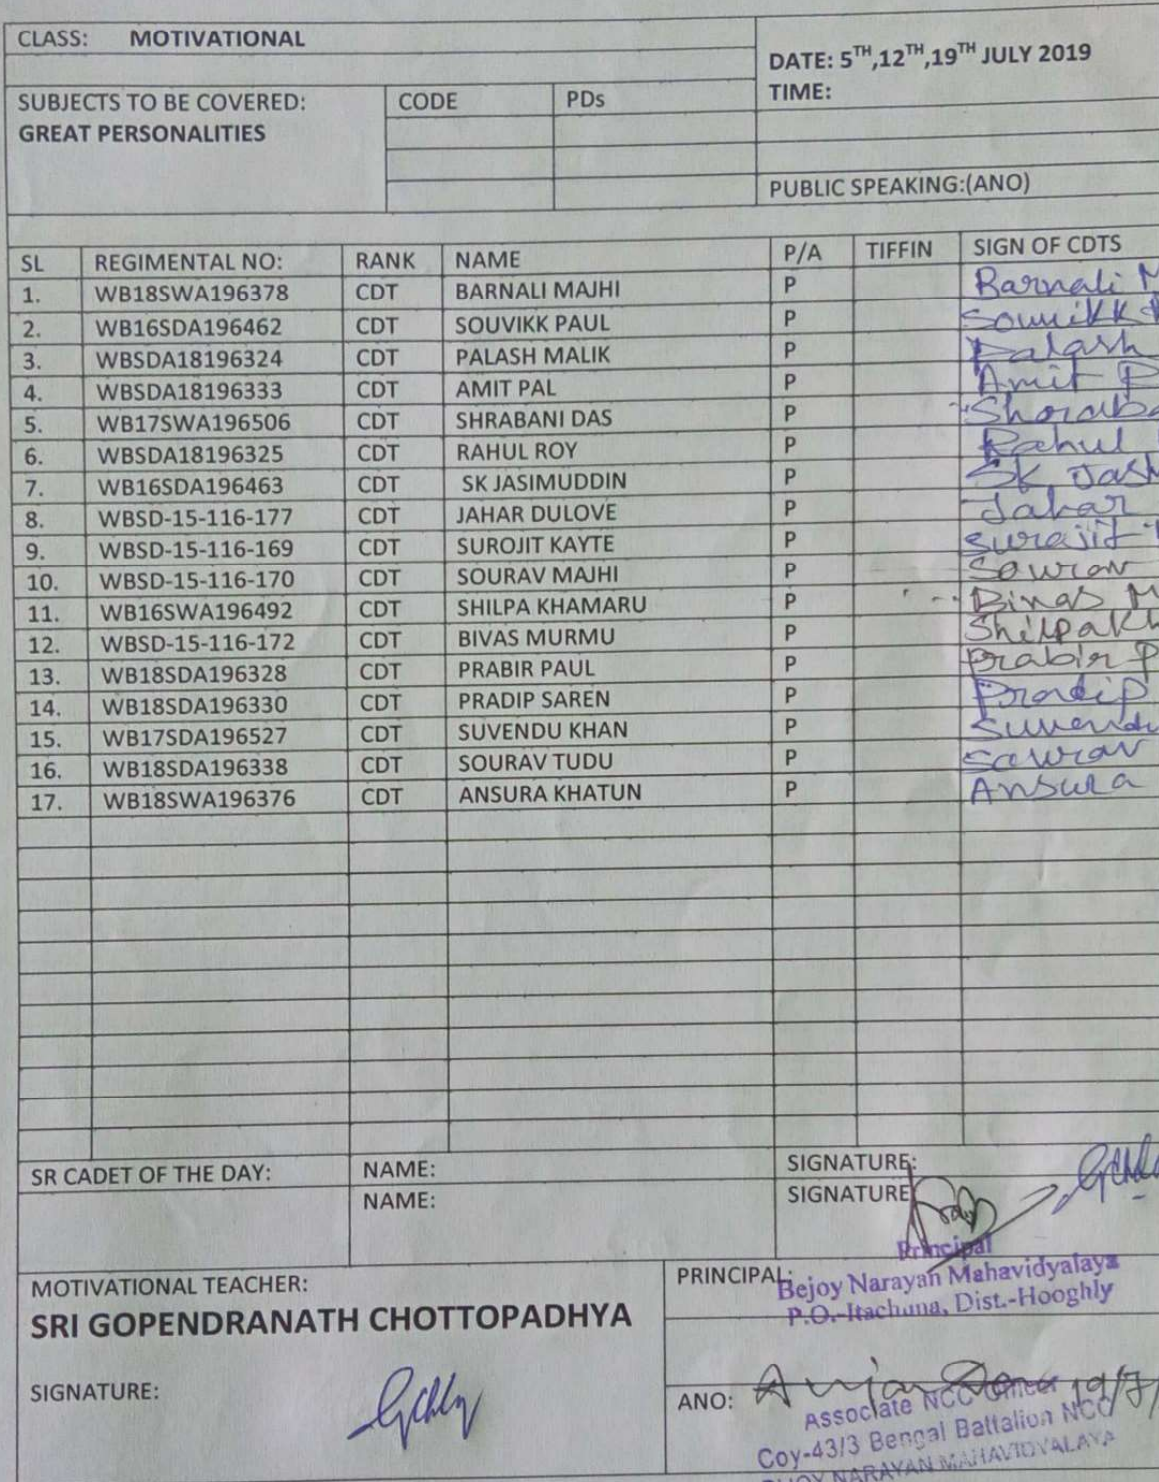 CLASS: MOTIVATIONAL
DATE: 5TH,12TH,19TH JULY 2019
TIME:
SUBJECTS TO BE COVERED: CODE PDs
GREAT PERSONALITIES
PUBLIC SPEAKING:(ANO)
SL REGIMENTAL NO: RANK NAME P/A TIFFIN SIGN OF CDTS
1. WB18SWA196378 CDT BARNALI MAJHI P Barnali M
2. WB16SDA196462 CDT SOUVIKK PAUL P Souvikk
3. WBSDA18196324 CDT PALASH MALIK P Palash
4. WBSDA18196333 CDT AMIT PAL P Amit P
5. WB17SWA196506 CDT SHRABANI DAS P
6. WBSDA18196325 CDT RAHUL ROY P Rahul
7. WB16SDA196463 CDT SK JASIMUDDIN P SK Jas
8. WBSD-15-116-177 CDT JAHAR DULOVE P Jahar
9. WBSD-15-116-169 CDT SUROJIT KAYTE P Surajit
10. WBSD-15-116-170 CDT SOURAV MAJHI P Sourav
11. WB16SWA196492 CDT SHILPA KHAMARU P Bivas M
12. WBSD-15-116-172 CDT BIVAS MURMU P Shilpa Kh
13. WB18SDA196328 CDT PRABIR PAUL P Prabir P
14. WB18SDA196330 CDT PRADIP SAREN P Pradip
15. WB17SDA196527 CDT SUVENDU KHAN P Suvendu
16. WB18SDA196338 CDT SOURAV TUDU P Sourav
17. WB18SWA196376 CDT ANSURA KHATUN P Ansura
SR CADET OF THE DAY: NAME: SIGNATURE:
NAME: SIGNATURE
Principal
MOTIVATIONAL TEACHER: PRINCIPAL:
Bejoy Narayan Mahavidyalaya
P.O.-Itachuna, Dist.-Hooghly
SRI GOPENDRANATH CHOTTOPADHYA
SIGNATURE: ANO: 19/7/
Associate NCC Officer
Coy-43/3 Bengal Battalion NCC
NARAYAN MAHAVIDYALAYA